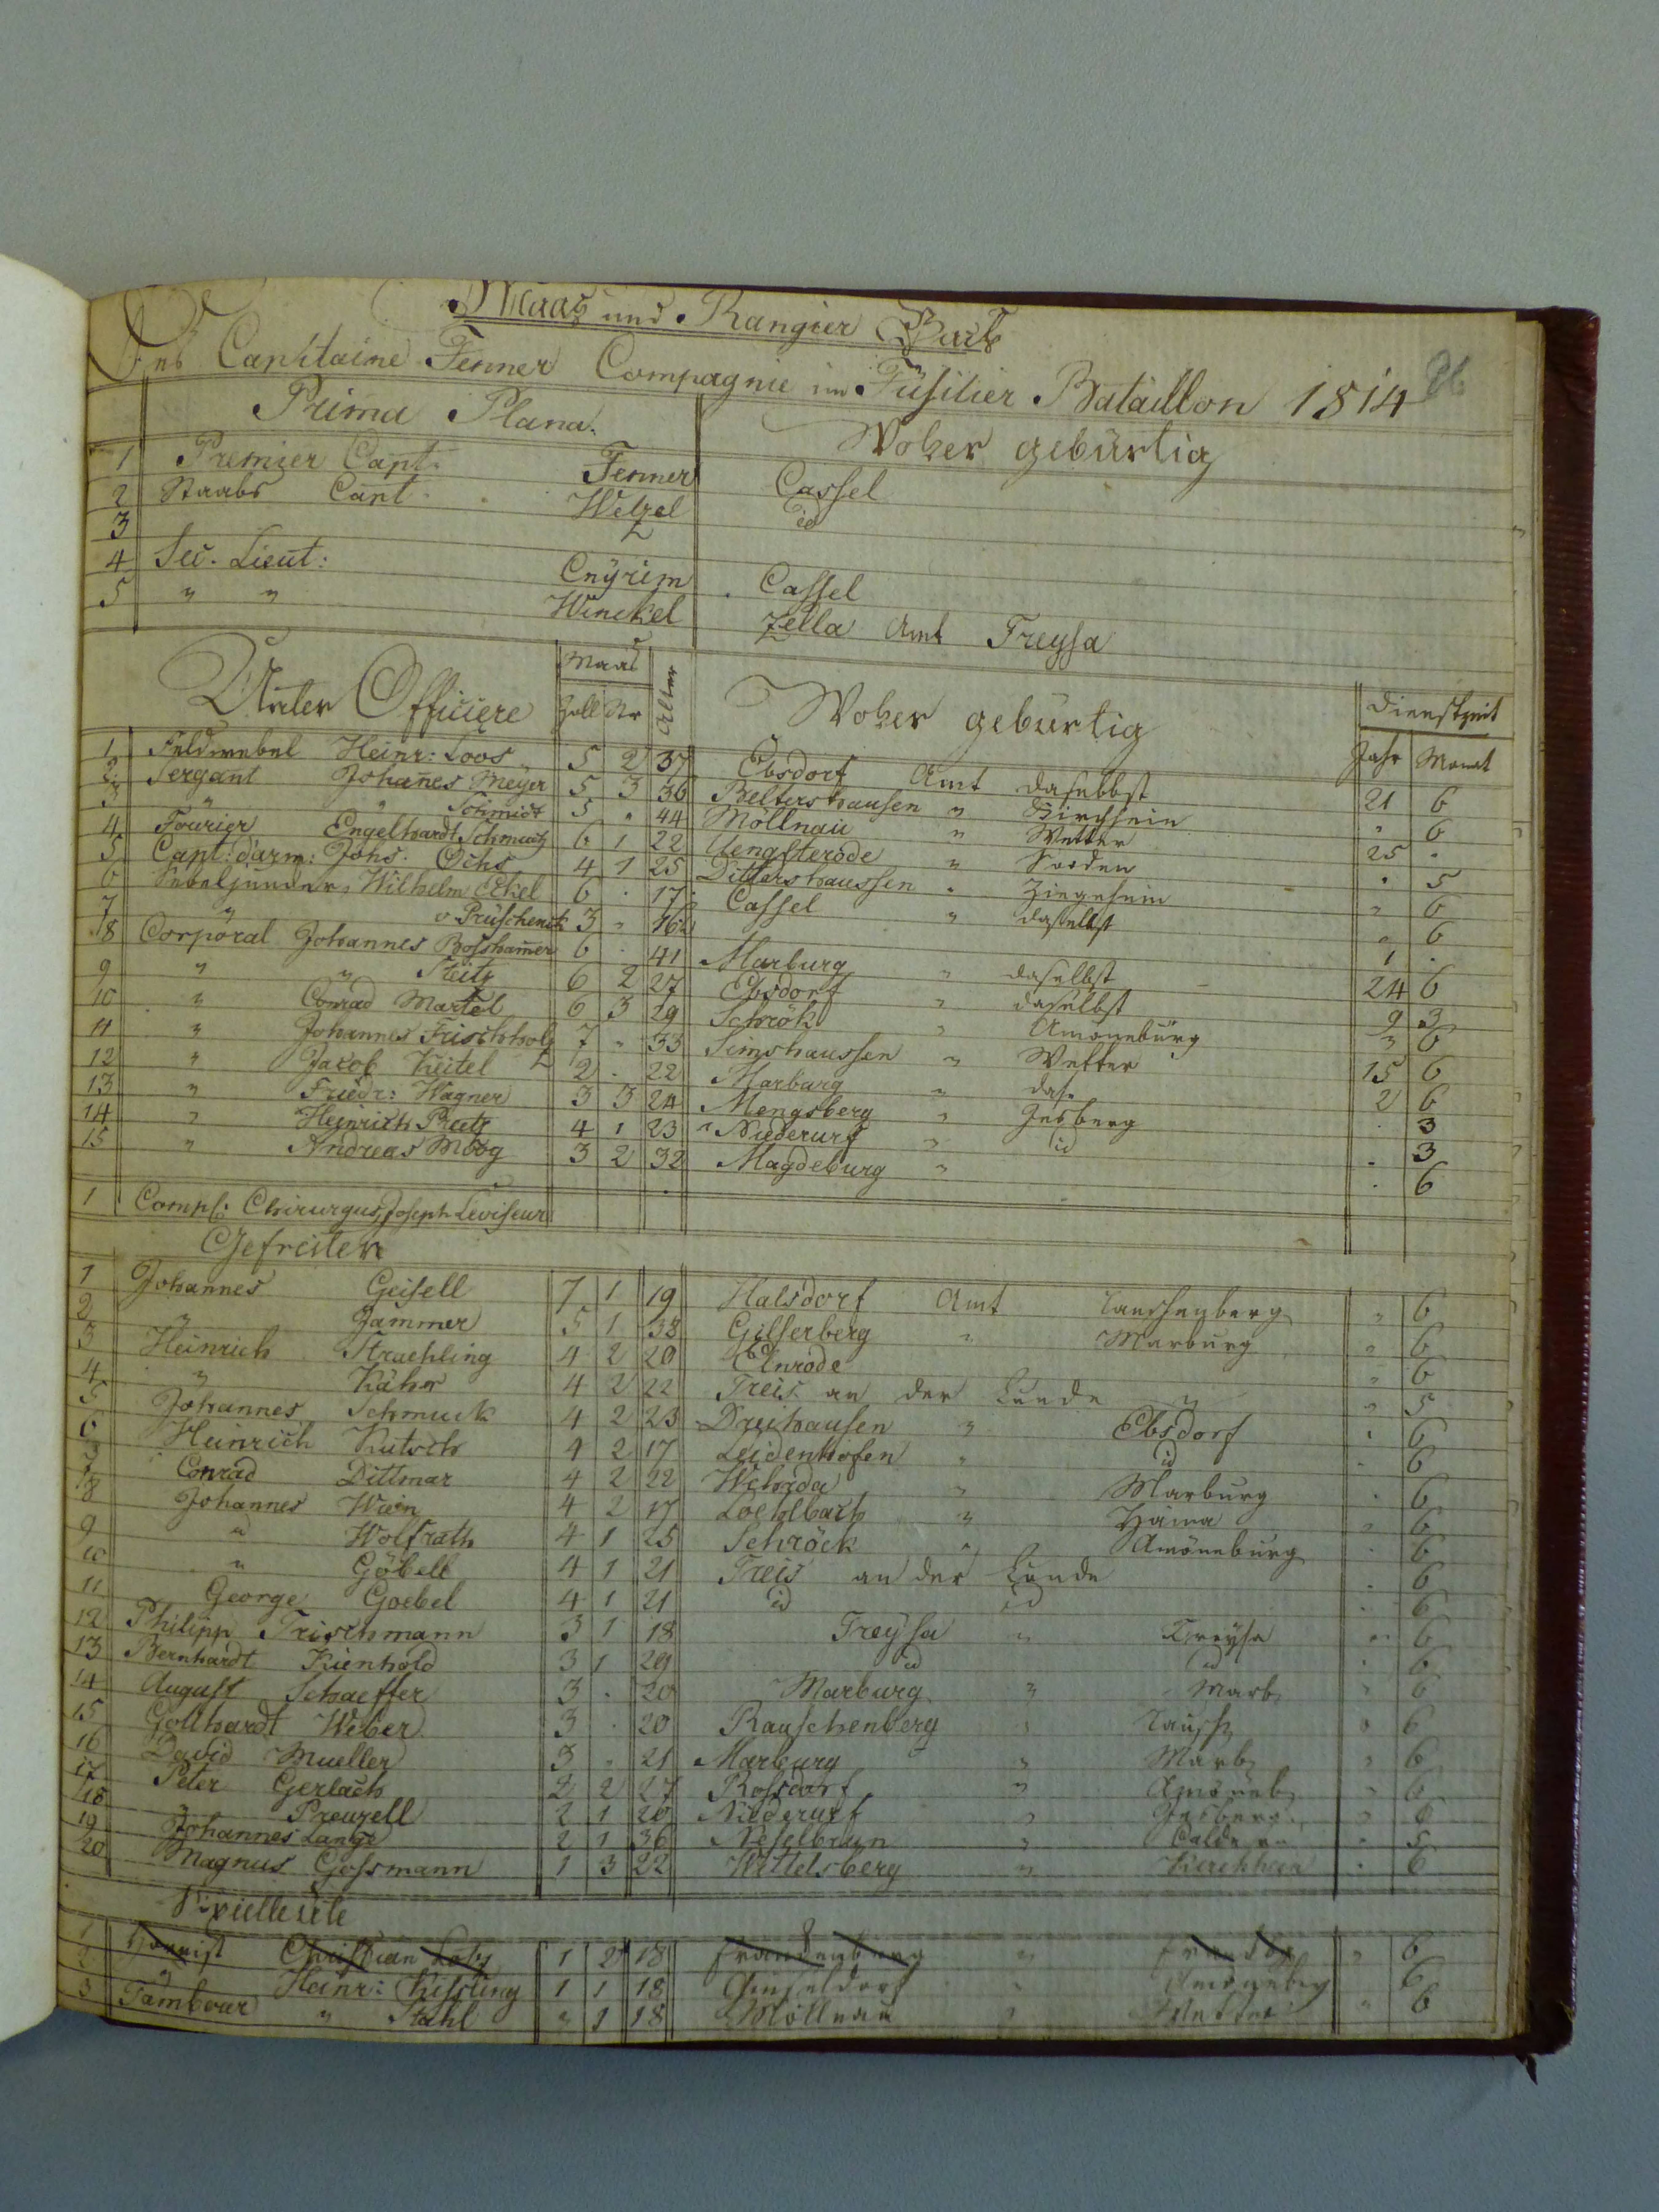 Maas und Rangier Buch
Des Capitaine Fenner Compagnie im Füsilier Bataillon 1814
Prima Plana. Woher gebürtig
1 Premier Capt. Fenner Cassel
2 Staabs Capt. Welzel id
3
4 Sec. Lieut: Cnÿrim Cassel
5 " " Winckel Zella Amt Treysa
Unter Officiere Maas Zoll Str Alter Woher gebürtig Dienstzeit Jahr Monat
1 Feldwebel Heinr: Loos 5 2 37 Ebsdorf Amt daselbst 21 6
2 Sergant Johanes Meyer 5 3 36 Beltershausen " Kirchhein " 6
3 " " Schmidt 5 " 44 Möllnau " Wetter 25 "
4 Fourier Engelhardt Schmutz 6 1 22 Uengsterode " Sooden " 5
5 Capt: d'arm: Johs. Ochs 4 1 25 Dittershaussen " Ziegehein " 6
6 Wilhelm 6 . 17 Cassel " daselbst " 6
7 " v Prüschenck 3 " 16 1 .
8 Corporal Johannes Bosshamer 6 . 41 Marburg " daselbst 24 6
9 " " Steitz 6 2 27 Ebsdorf " daselbst 9 3
10 " Conrad Martel 6 3 29 Schrök " Amöneburg " 6
11 " Johannes Frischholz 7 " 33 Simshaussen " Wetter 15 6
12 " Jacob Keitel 2 . 22 Marburg " das. 2 6
13 " Friedr: Wagner 3 3 24 Mengsberg " Jesberg . 3
14 " Heinrich Reitz 4 1 23 Niederurf " id . 3
15 " Andreas Moog 3 2 32 Magdeburg " . 6
1 Comps: Chirurgus, Joseph Leviseur
Gefreiten
1 Johannes Geisell 7 1 19 Halsdorf Amt Rauschenberg " 6
2 " Jammer 5 1 38 Gilserberg " Marburg " 6
3 Heinrich Straehling 4 2 20 Elnrode " 6
4 " Käher 4 2 22 Treis an der Lumde " " 5
5 Johannes Schmuck 4 2 23 Dreihausen " Ebsdorf " 6
6 Heinrich Kutsch 4 2 17 Leidenhofen " id . 6
7 Conrad Dittmar 4 2 22 Wehrda " Marburg . 6
8 Johannes Wein 4 2 17 Loehlbach " Haina " 6
9 " Wolfrath 4 1 25 Schröck " Amöneburg . 6
10 " Göbell 4 1 21 Treis an der Lumde . 6
11 George Goebel 4 1 21 id id . 6
12 Philipp Trischmann 3 1 18 Treysa " Treysa " 6
13 Bernhardt Kienhold 3 1 29 id id . 6
14 August Schaeffer 3 . 20 Marburg " Marb " 6
15 Gotthardt Weber 3 . 20 Rauschenberg " Rausch " 6
16 David Mueller 3 " 21 Marburg " Marb " 6
17 Peter Gerlach 2 2 27 Rossdorf " Amöneb " 6
18 " Preuzell 2 1 20 Niederurf " Jesberg " 6
19 Johannes Lange 2 1 36 Neselbrun " Caldern . 5
20 Magnus Gossmann 1 3 22 Wittelsberg " Kirchhein . 6
Spielleute
1 Hornist Christian 1 2 18 Frankenberg " " 6
2 " Heinr: Kissling 1 1 18 " Amönebrg 6
3 Tambour " Stahl " 1 18 Möllnau " Wetter " 6